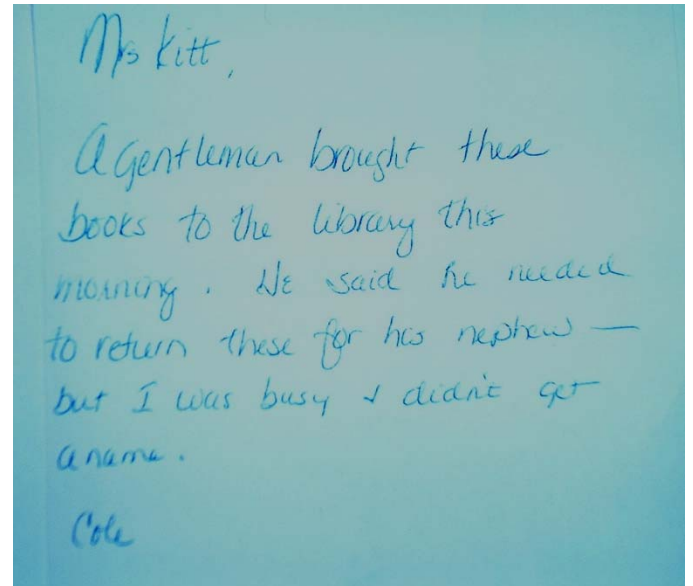 Mrs Kitt,
A gentleman brought these
books to the library this
morning. He said he needed
to return these for his nephew —
but I was busy & didn't get
a name.
Cole